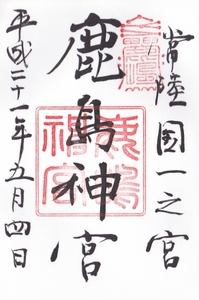 常陸国一之宮
鹿島神宮
平成二十一年五月四日
鹿嶋神宮